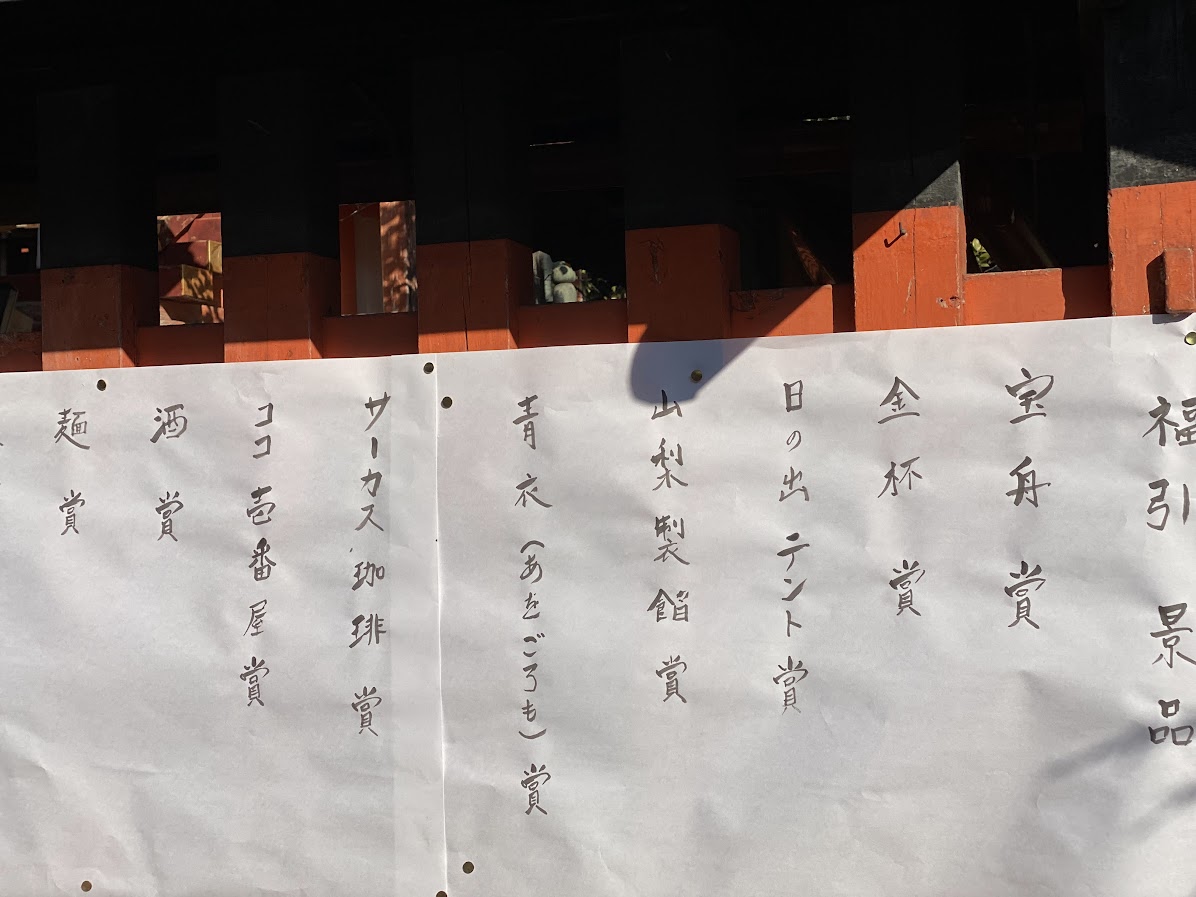 福引 景品
宝舟 賞
金杯 賞
日の出 テント 賞
山梨製餡 賞
青衣(あをごろも)賞
サーカス珈琲 賞
ココ壱番屋 賞
酒 賞
麺 賞